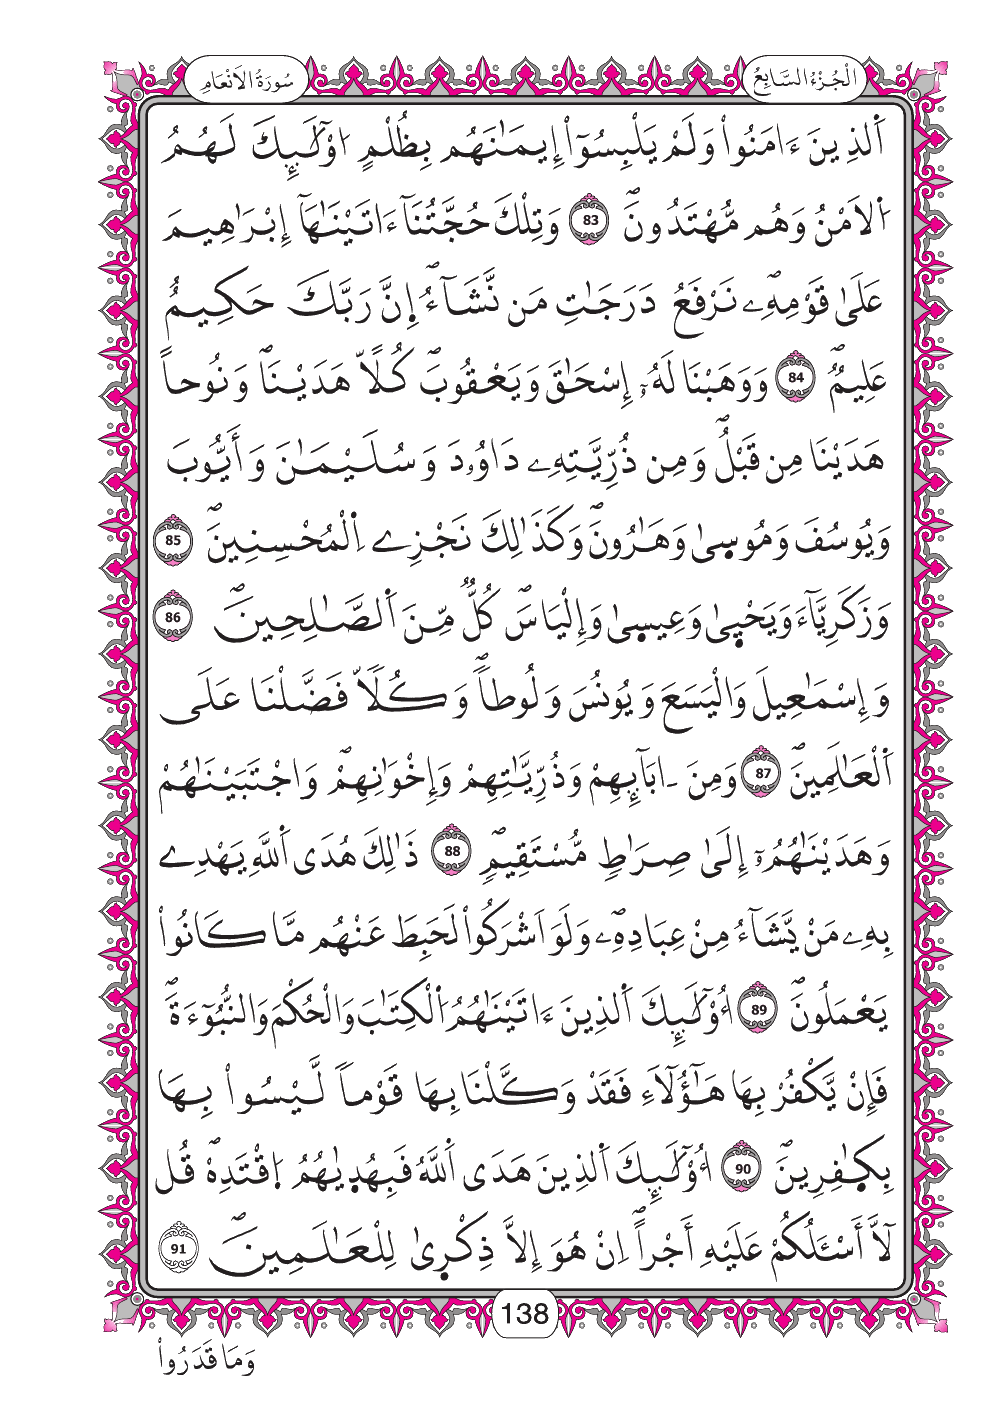 الْجُزْءُ السَّابِعُ
سُورَةُ الَانْعَامِ
اَ۬لذِينَ ءَامَنُواْ وَلَمْ يَلْبِسُوٓاْ إِيمَٰنَهُم بِظُلْمٍ ا۟وْلَٰٓئِكَ لَهُمُ
اُ۬لَامْنُ وَهُم مُّهْتَدُونَۖ 83 وَتِلْكَ حُجَّتُنَآ ءَاتَيْنَٰهَآ إِبْرَٰهِيمَ
عَلَىٰ قَوْمِهِۦۖ نَرْفَعُ دَرَجَٰتِ مَن نَّشَآءُۖ إِنَّ رَبَّكَ حَكِيمٌ
عَلِيمٌۖ 84 وَوَهَبْنَا لَهُۥٓ إِسْحَٰقَ وَيَعْقُوبَۖ كُلًّا هَدَيْنَاۖ وَنُوحاً
هَدَيْنَا مِن قَبْلُۖ وَمِن ذُرِّيَّتِهِۦ دَاوُۥدَ وَسُلَيْمَٰنَ وَأَيُّوبَ
وَيُوسُفَ وَمُوسۭىٰ وَهَٰرُونَۖ وَكَذَٰلِكَ نَجْزِے اِ۬لْمُحْسِنِينَۖ 85
وَزَكَرِيَّآءَ وَيَحْيۭىٰ وَعِيسۭىٰ وَإِلْيَاسَۖ كُلٌّ مِّنَ اَ۬لصَّٰلِحِينَۖ 86
وَإِسْمَٰعِيلَ وَالْيَسَعَ وَيُونُسَ وَلُوطاًۖ وَكُلًّا فَضَّلْنَا عَلَى
اَ۬لْعَٰلَمِينَۖ 87 وَمِنَ ـ ابَآئِهِمْ وَذُرِّيَّٰتِهِمْ وَإِخْوَٰنِهِمْۖ وَاجْتَبَيْنَٰهُمْ
وَهَدَيْنَٰهُمُۥٓ إِلَىٰ صِرَٰطٍ مُّسْتَقِيمٍۖ 88 ذَٰلِكَ هُدَى اَ۬للَّهِ يَهْدِے
بِهِۦ مَنْ يَّشَآءُ مِنْ عِبَادِهِۦۖ وَلَوَ اَشْرَكُواْ لَحَبِطَ عَنْهُم مَّا كَانُواْ
يَعْمَلُونَۖ 89 أُوْلَٰٓئِكَ اَ۬لذِينَ ءَاتَيْنَٰهُمُ اُ۬لْكِتَٰبَ وَالْحُكْمَ وَالنُّبُوٓءَةَۖ
فَإِنْ يَّكْفُرْ بِهَا هَٰٓؤُلَآءِ فَقَدْ وَكَّلْنَا بِهَا قَوْماً لَّيْسُواْ بِهَا
بِكٰ۪فِرِينَۖ 90 أُوْلَٰٓئِكَ اَ۬لذِينَ هَدَى اَ۬للَّهُ فَبِهُدۭىٰهُمُ اُ۪قْتَدِهْۖ قُل
لَّآ أَسْـَٔلُكُمْ عَلَيْهِ أَجْراًۖ اِنْ هُوَ إِلَّا ذِكْرۭىٰ لِلْعَٰلَمِينَۖ 91
138
وَمَا قَدَرُواْ